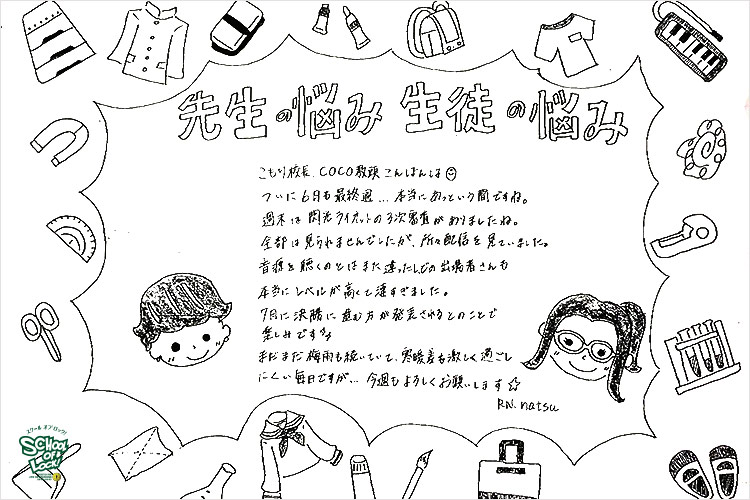 先生の悩み 生徒の悩み
こもり校長、COCO教頭 こんばんは
ついに6月も最終週... 本当にあっという間ですね。
週末は閃光ライオットの3次審査がありましたね。
全部は見られませんでしたが、所々配信を見ていました。
音源を聴くのとはまた違ったしどの出場者さんも
本当にレベルが高くて凄すぎました。
7月に決勝に進む方が発表されるとのことで
楽しみです
まだまだ梅雨も続いていて、寒暖差も激しく過ごし
にくい毎日ですが... 今週もよろしくお願いします☆
RN. natsu
スクール オブ ロック!
SCHOOL OF LOCK!